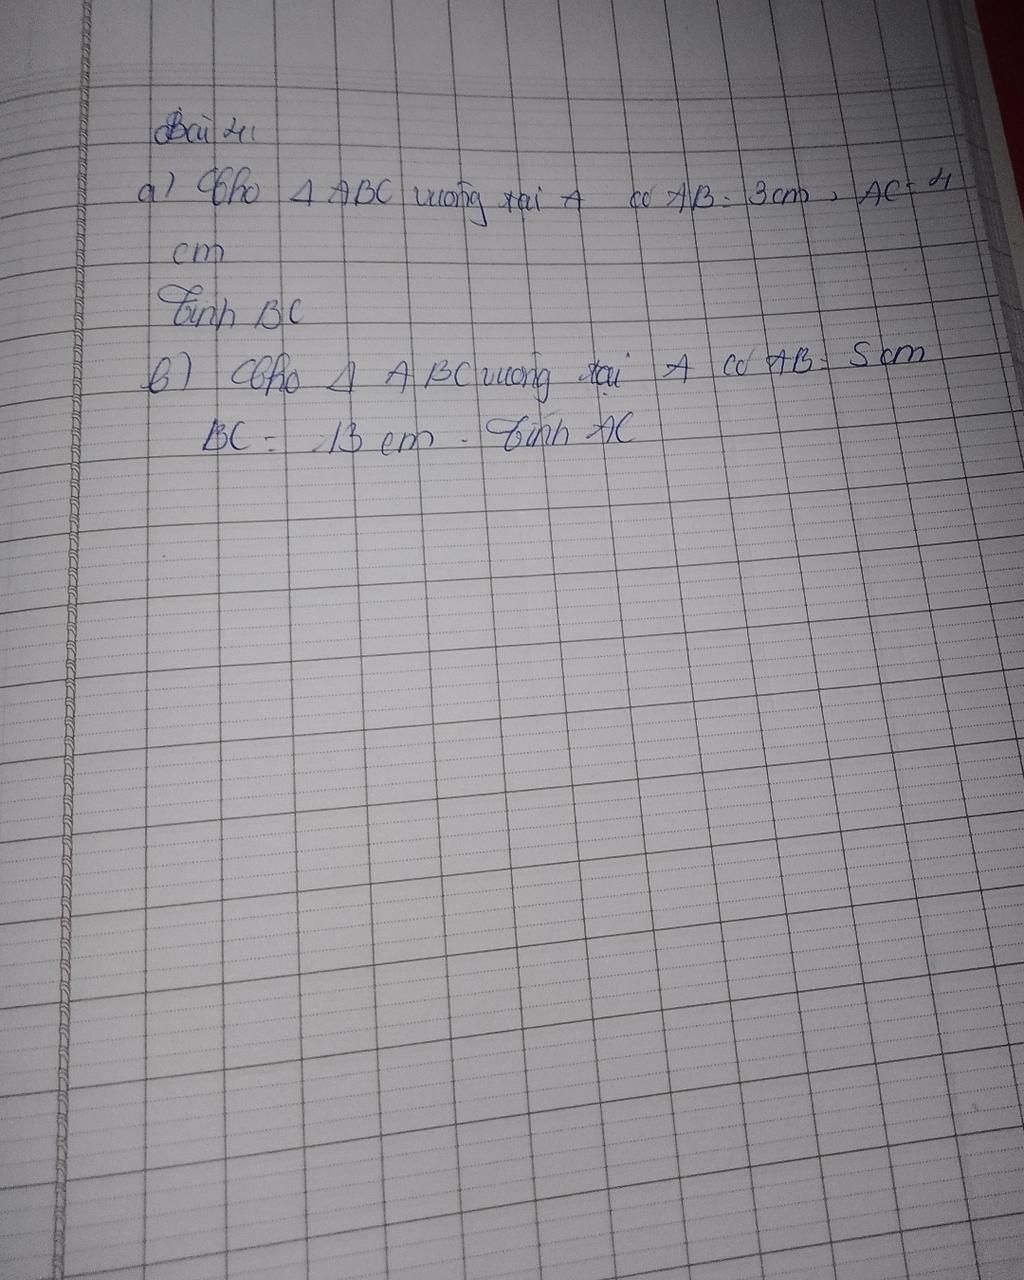 Bài 4:
a) Cho Δ ABC vuông tại A có AB = 3cm, AC = 4
cm
Tính BC
b) Cho Δ ABC vuông tại A có AB = 5cm
BC = 13 cm. Tính AC